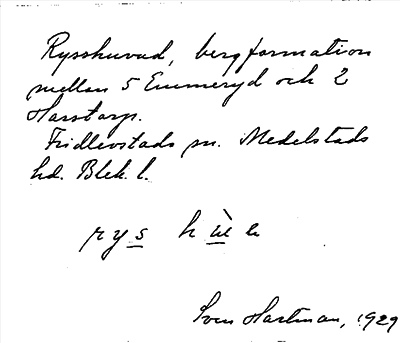 Rysshuvud, bergformation
mellan 5 Emmeryd och 2
Harstorp.
Fridlevstads sn. Medelstads
hd. Blek. l.
rys hùe
Sven Hartman, 1929